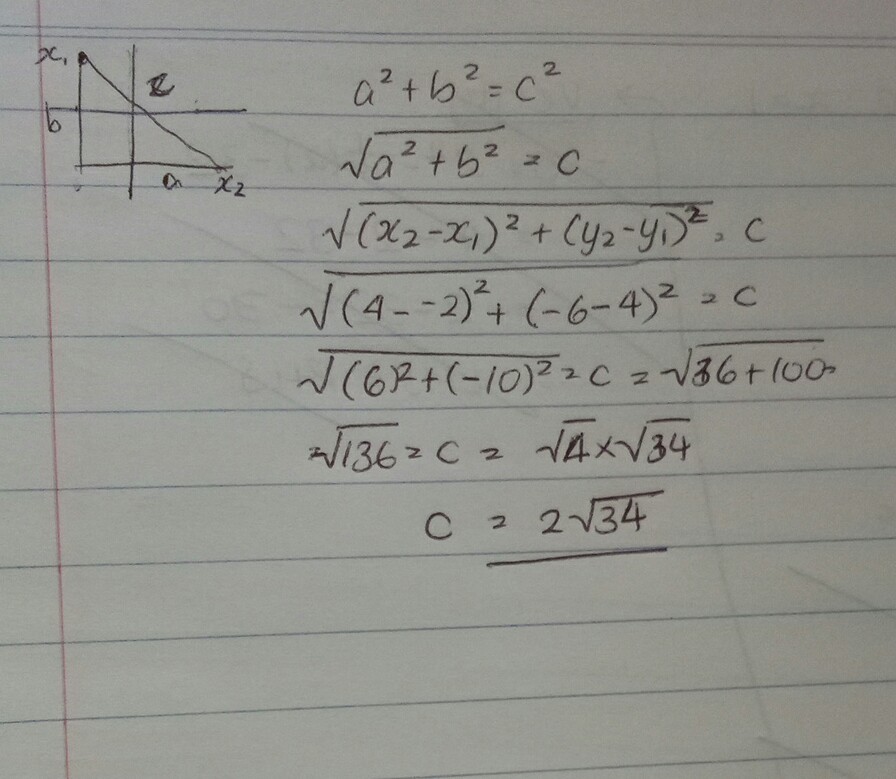 x₁
c
b
a x₂
a² + b² = c²
√(a² + b²) = c
√((x₂ - x₁)² + (y₂ - y₁)²) = c
√((4 - -2)² + (-6 - 4)²) = c
√((6)² + (-10)²) = c = √(36 + 100) =
= √136 = c = √4 × √34
c = 2√34